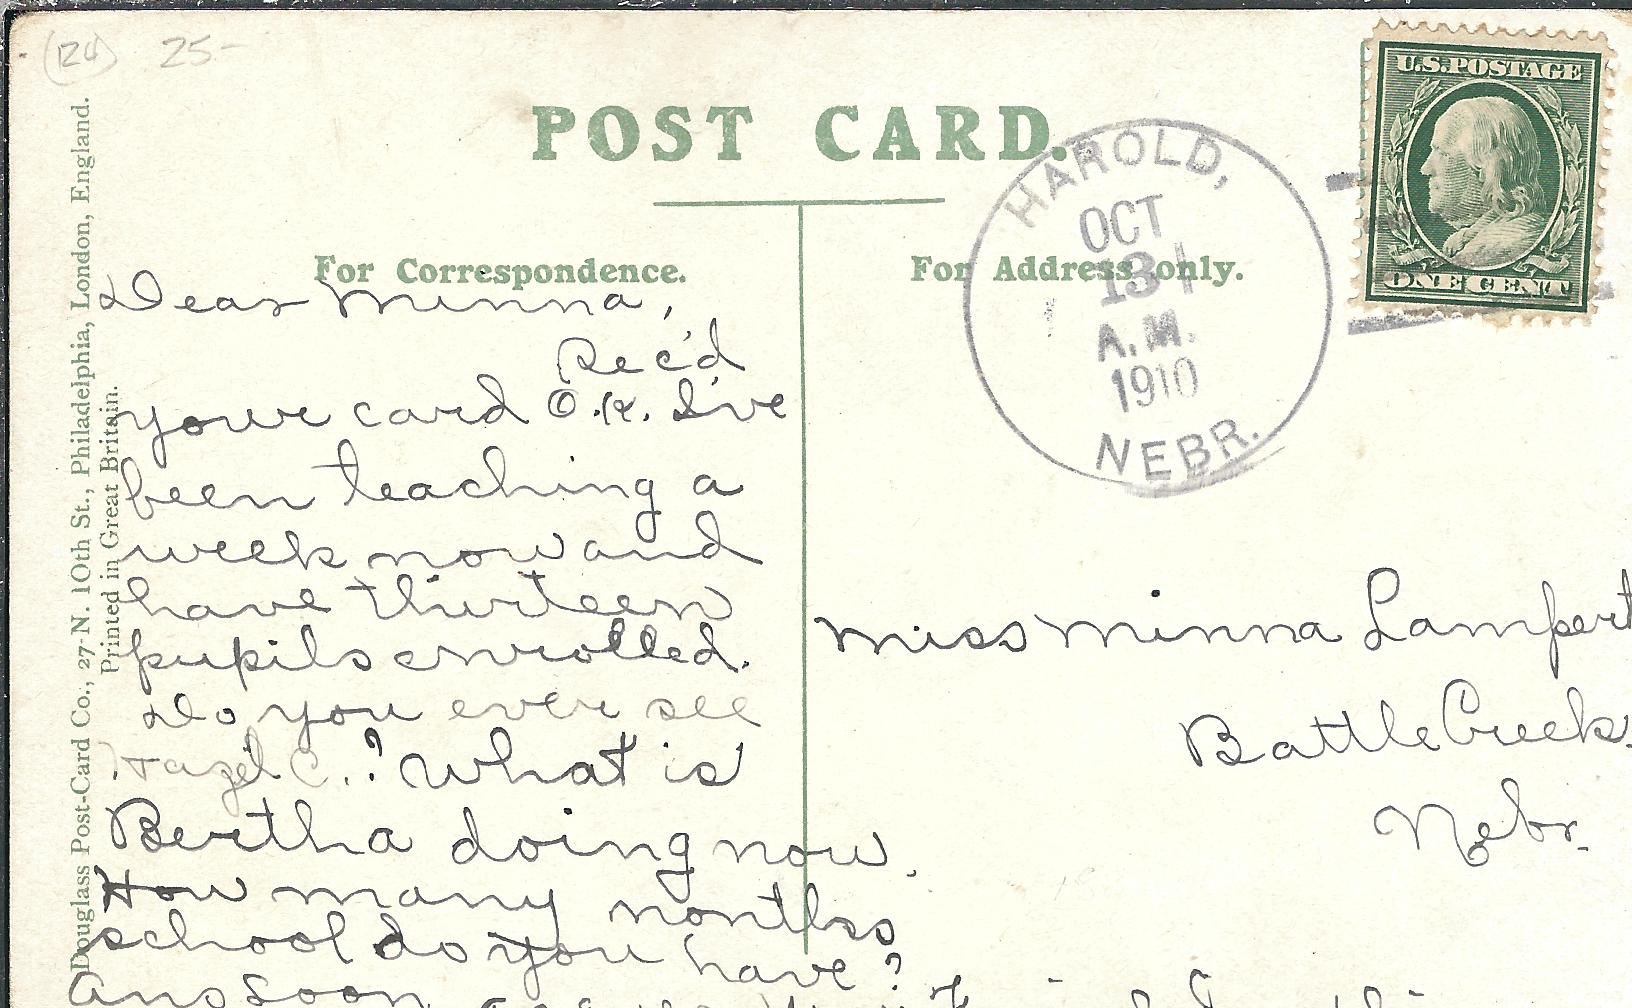 (124) 25-
POST CARD.
U.S. POSTAGE
ONE CENT
HAROLD,
OCT
13
A.M.
1910
NEBR.
For Correspondence.
For Address only.
Douglass Post-Card Co., 27-N. 10th St., Philadelphia, London, England.
Printed in Great Britain.
Dear Minna,
Rec'd
your card O.K. I've
been teaching a
week now and
have thirteen
pupils enrolled.
Do you ever see
Hazel C.? What is
Bertha doing now.
How many months
school do you have?
Ans soon
Miss Minna Lampert
Battle Creek.
Nebr.